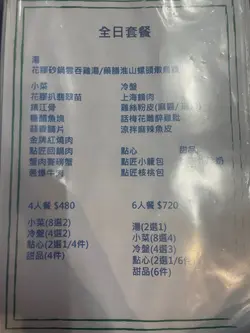 全日套餐
湯
花膠砂鍋雲吞雞湯/藥膳淮山螺頭燉
小菜
花膠扒翡
鎮江骨
糖醋魚
蒜
金牌紅燒肉
點匠回鍋肉
蟹肉賽螃蟹
蔥爆牛
冷盤
上海醉肉
雞絲粉皮(麻醬/
話梅花雕醉雞
涼拌麻辣魚皮
點心 甜品
點匠小籠包 奶
點匠核桃包
4人餐 $480
小菜(8選2)
冷盤(4選2)
點心(2選1/4件)
甜品(4件)
6人餐 $720
湯(2選1)
小菜(8選4)
冷盤(4選3)
點心(2選1/6件)
甜品(6件)